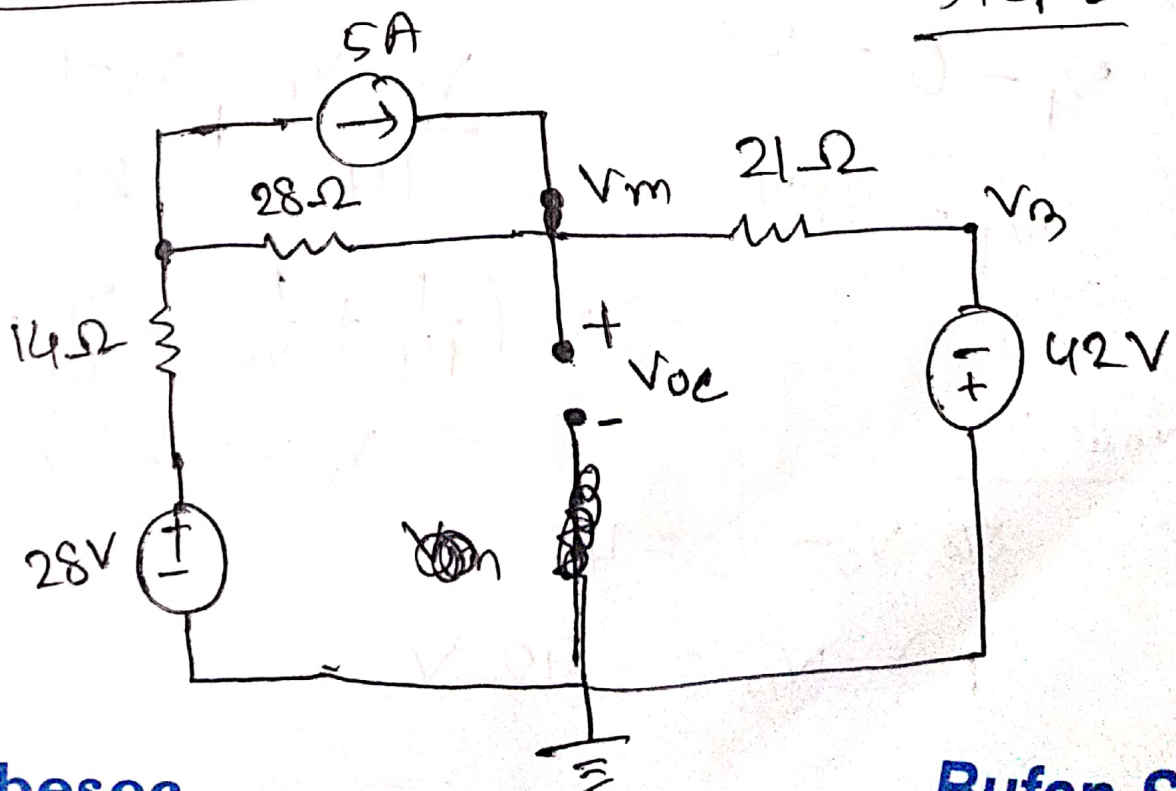 5A
28Ω
Vm
21Ω
VB
14Ω
+
Voc
-
-
+
42V
28V
+
-